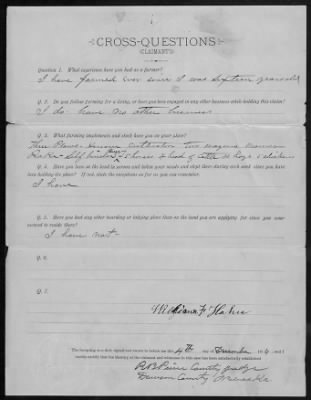 CROSS-QUESTIONS
(CLAIMANT)
Question 1. What experience have you had as a farmer?
I have farmed ever since I was sixteen years old
Q. 2. Do you follow farming for a living, or have you been engaged in any other business while holding this claim?
I do have no other business
Q. 3. What farming implements and stock have you on your place?
Three Plows Harrow Cultivator two wagons mower
Rake Self binder 5 horses head of cattle hogs chickens
Q. 4. Have you been on the land in season and taken your meals and slept there during each week since you have
been holding the place? If not, state the exceptions so far as you can remember.
I have
Q. 5. Have you had any other boarding or lodging place than on the land you are applying for since you commenced to reside there?
I have not
Q. 6.
Q. 7.
The foregoing was duly signed and sworn to before me this 4th day of December 18
County Judge
Dawson County Nebraska